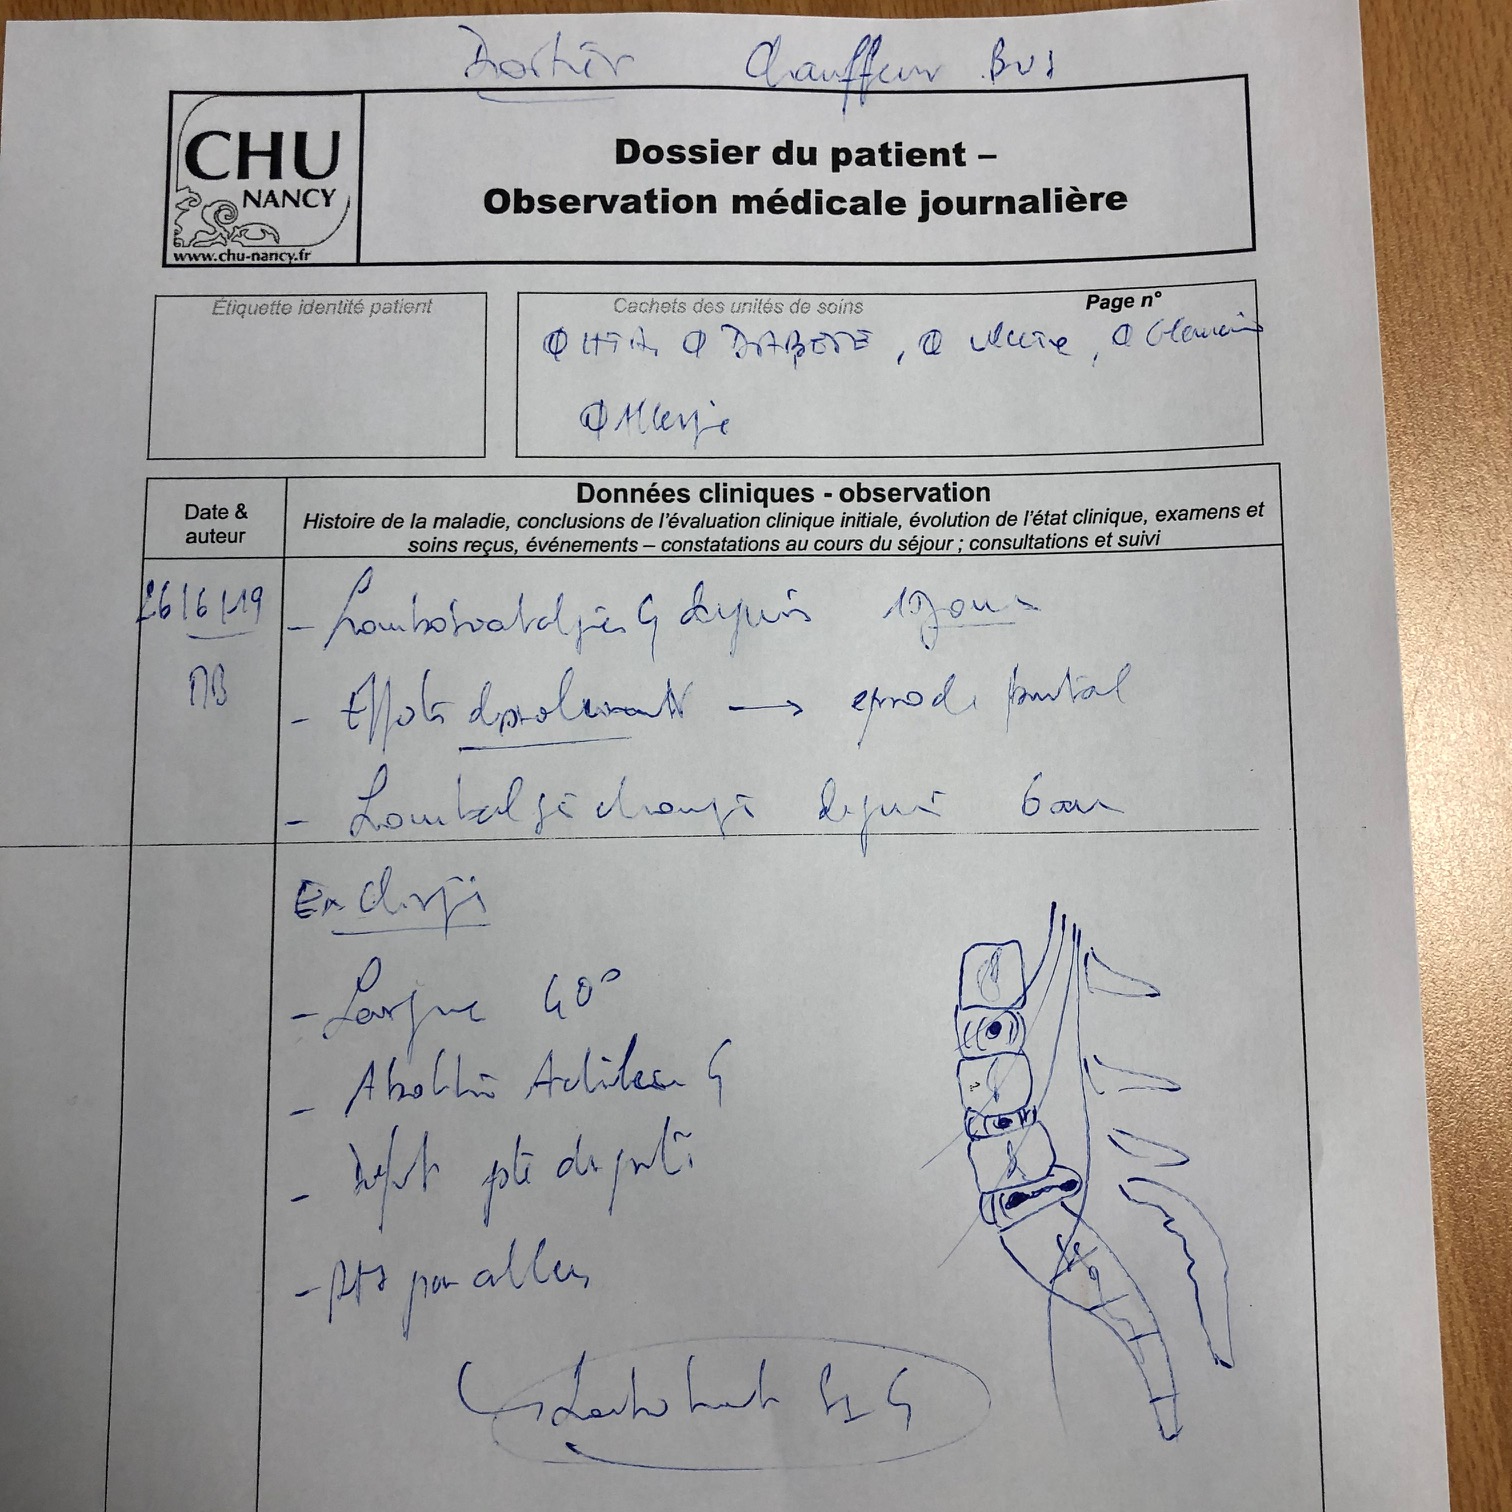 Chauffeur Bus
CHU
NANCY
www.chu-nancy.fr
Dossier du patient –
Observation médicale journalière
Étiquette identité patient
Cachets des unités de soins
Page n°
Ø HTA, Ø DIABETE, Ø Ulcère, Ø
Ø Allergie
Date &
auteur
Données cliniques - observation
Histoire de la maladie, conclusions de l'évaluation clinique initiale, évolution de l'état clinique, examens et
soins reçus, événements – constatations au cours du séjour ; consultations et suivi
26/6/19
- Lombosciatalgie G depuis
- Efforts → épisode brutal
- Lombalgie chronique depuis 6 ans
- Lasègue 40°
- Abolition Achilléen G
- Déficit pte du pied
- 
S1 G